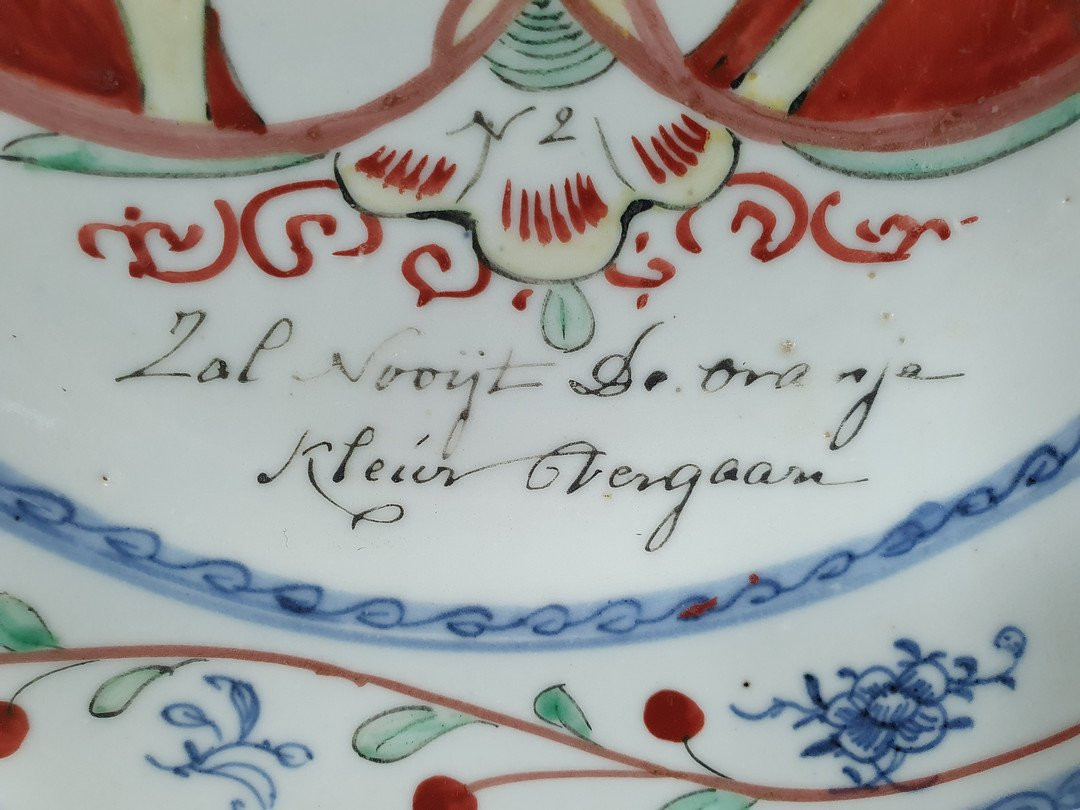 N 2
Zal Nooÿt De oranje
Kleúr Vergaan